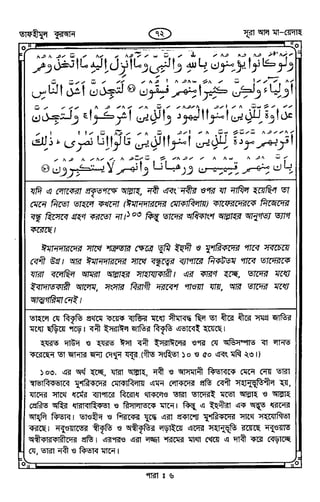 তাফহীমুল কুরআন
৭২
সূরা আল মা–য়েদাহ
وَلَوْ كَانُوا يُؤْمِنُونَ بِاللهِ وَالنَّبِيِّ وَمَا أُنْزِلَ إِلَيْهِ مَا اتَّخَذُوهُمْ
أَوْلِيَاءَ وَلَكِنَّ كَثِيرًا مِنْهُمْ فَسِقُونَ ۝ لَتَجِدَنَّ أَشَدَّ النَّاسِ
عَدَاوَةً لِلَّذِينَ آمَنُوا الْيَهُودَ وَالَّذِينَ أَشْرَكُوا ۚ وَلَتَجِدَنَّ
أَقْرَبَهُمْ مَوَدَّةً لِلَّذِينَ آمَنُوا الَّذِينَ قَالُوا إِنَّا نَصْرَى ۚ ذَلِكَ
بِأَنَّ مِنْهُمْ قِسِّيسِينَ وَرُهْبَانًا وَأَنَّهُمْ لَا يَسْتَكْبِرُونَ ۝
যদি এ লোকেরা প্রকৃতপক্ষে আল্লাহ, নবী এবং নবীর ওপর যা নাযিল হয়েছিল তা
মেনে নিতো তাহলে কখনো (ঈমানদারদের মোকাবিলায়) কাফেরদেরকে নিজেদের
বন্ধু হিসেবে গ্রহণ করতো না।১০৩ কিন্তু তাদের অধিকাংশ আল্লাহর আনুগত্য ত্যাগ
করেছে।
ঈমানদারদের সাথে শত্রুতার ক্ষেত্রে তুমি ইহুদী ও মুশরিকদের পাবে সবচেয়ে
বেশী উগ্র। আর ঈমানদারদের সাথে বন্ধুত্বের ব্যাপারে নিকটতম পাবে তাদেরকে
যারা বলেছিল আমরা আল্লাহর সাহায্যকারী। এর কারণ হচ্ছে, তাদের মধ্যে
ইবাদাতকারী আলেম, সংসার বিরাগী দরবেশ পাওয়া যায়, আর তাদের মধ্যে
আত্মগরিমা নেই।
তাহলে যে বিকৃতি প্রথমে কয়েক ব্যক্তির মধ্যে সীমাবদ্ধ ছিল তা ধীরে ধীরে সমগ্র জাতির
মধ্যে ছড়িয়ে পড়ে। বনী ইসরাঈল জাতির বিকৃতি এভাবেই হয়েছে।
হযরত দাউদ ও হযরত ঈসা বনী ইসরাঈলের ওপর যে অভিসম্পাত বা লানত
করেছেন তা জানার জন্য দেখুন যবূর (গীত সংহিতা ১০ ও ৫০ এবং মথি ২৩।)
১০৩. এর অর্থ হচ্ছে, যারা আল্লাহ, নবী ও আসমানী কিতাবকে মেনে নেয় তারা
স্বাভাবিকভাবে মুশরিকদের মোকাবিলায় এমন লোকদের প্রতি বেশী সহানুভূতিশীল হয়,
যাদের সাথে ধর্মের ব্যাপারে বিরোধ থাকলেও তারা তাদেরই মতো আল্লাহ ও আল্লাহ
প্রেরিত অহির ধারাবাহিকতা ও রিসালাতকে মানে। কিন্তু এ ইহুদীরা এক অদ্ভুত ধরনের
আহলি কিতাব। তাওহীদ ও শিরকের যুদ্ধে এরা প্রকাশ্যে মুশরিকদের সাথে সহযোগিতা
করছে। নবুওয়াতের স্বীকৃতি ও অস্বীকৃতির লড়াইয়ে এদের সহানুভূতি রয়েছে নবুওয়াত
অস্বীকারকারীদের প্রতি। এরপরও এরা লজ্জা শরমের মাথা খেয়ে এ দাবী করে বেড়াচ্ছে
যে, তারা নবী ও কিতাব মানে।
পারা : ৬